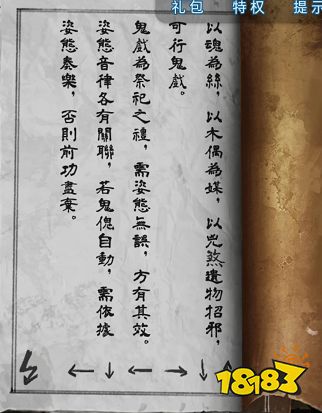 礼包 特权 提示
以魂為絲，以木偶為媒，以兇煞遺物招邪，
可行鬼戲。
鬼戲為祭祀之禮，需姿態無誤，方有其效。
姿態音律各有關聯，若鬼傀自動，需依據
姿態奏樂，否則前功盡棄。
← ↓ ← → → ↓
18183